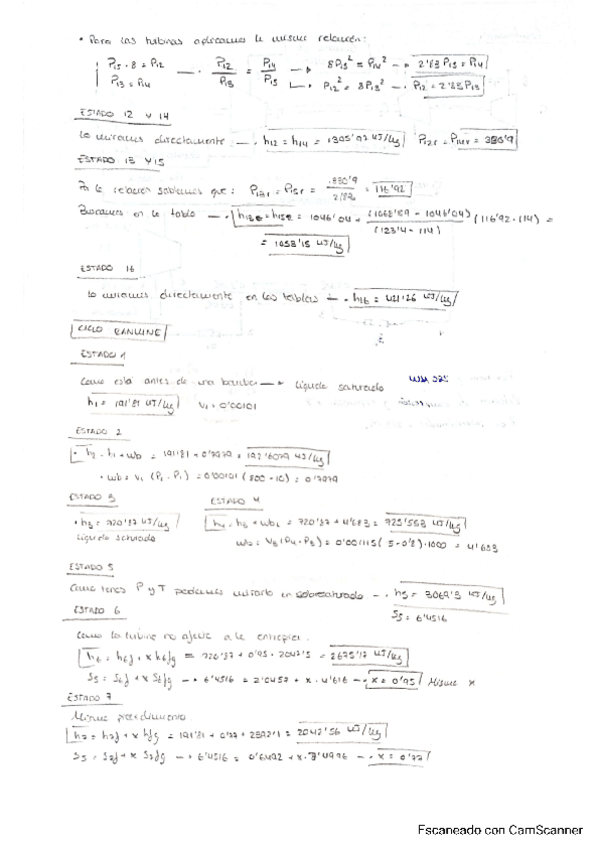 • Para las turbinas aplicamos la misma relación:
P15 · 8 = P12
P13 = P14
P12 / P13 = P14 / P15 → 8P15² = P14² → 2'83 P15 = P14
P12² = 8P13² → P12 = 2'83 P13
ESTADO 12 y 14
Lo miramos directamente → h12 = h14 = 1395'97 kJ/kg P12r = P14r = 330'9
ESTADO 13 y 15
Por la relación sabemos que: P13r = P15r = 330'9 / 2'83 = 116'92
Buscamos en la tabla → h13 = h15 = 1046'04 + (1068'89 - 1046'04) / (123'4 - 114) (116'92 - 114) =
= 1053'15 kJ/kg
ESTADO 16
Lo miramos directamente en las tablas → h16 = 421'26 kJ/kg
CICLO RANKINE
ESTADO 1
Como está antes de una bomba → líquido saturado
h1 = 191'81 kJ/kg v1 = 0'00101
ESTADO 2
h2 = h1 + wb = 191'81 + 0'7979 = 192'6079 kJ/kg
• wb = v1 (P2 - P1) = 0'00101 (800 - 10) = 0'7979
ESTADO 3 ESTADO 4
• h3 = 720'87 kJ/kg h4 = h3 + wb2 = 720'87 + 4'683 = 725'553 kJ/kg
líquido saturado wb2 = v3 (P4 - P3) = 0'001115 (5 - 0'8) · 1000 = 4'683
ESTADO 5
Como tenemos P y T podemos mirarlo en sobrecalentado → h5 = 3069'3 kJ/kg
S5 = 6'4516
ESTADO 6
Como la turbina no afecta a la entropía:
h6 = h6f + x h6fg = 720'87 + 0'95 · 2047'5 = 2675'17 kJ/kg
S5 = S6f + x S6fg → 6'4516 = 2'0457 + x · 4'616 → x = 0'95
ESTADO 7
Mismo procedimiento
h7 = h7f + x h7fg = 191'81 + 0'77 · 2392'1 = 2042'56 kJ/kg
S5 = S7f + x S7fg → 6'4516 = 0'6492 + x · 7'4996 → x = 0'77
Escaneado con CamScanner